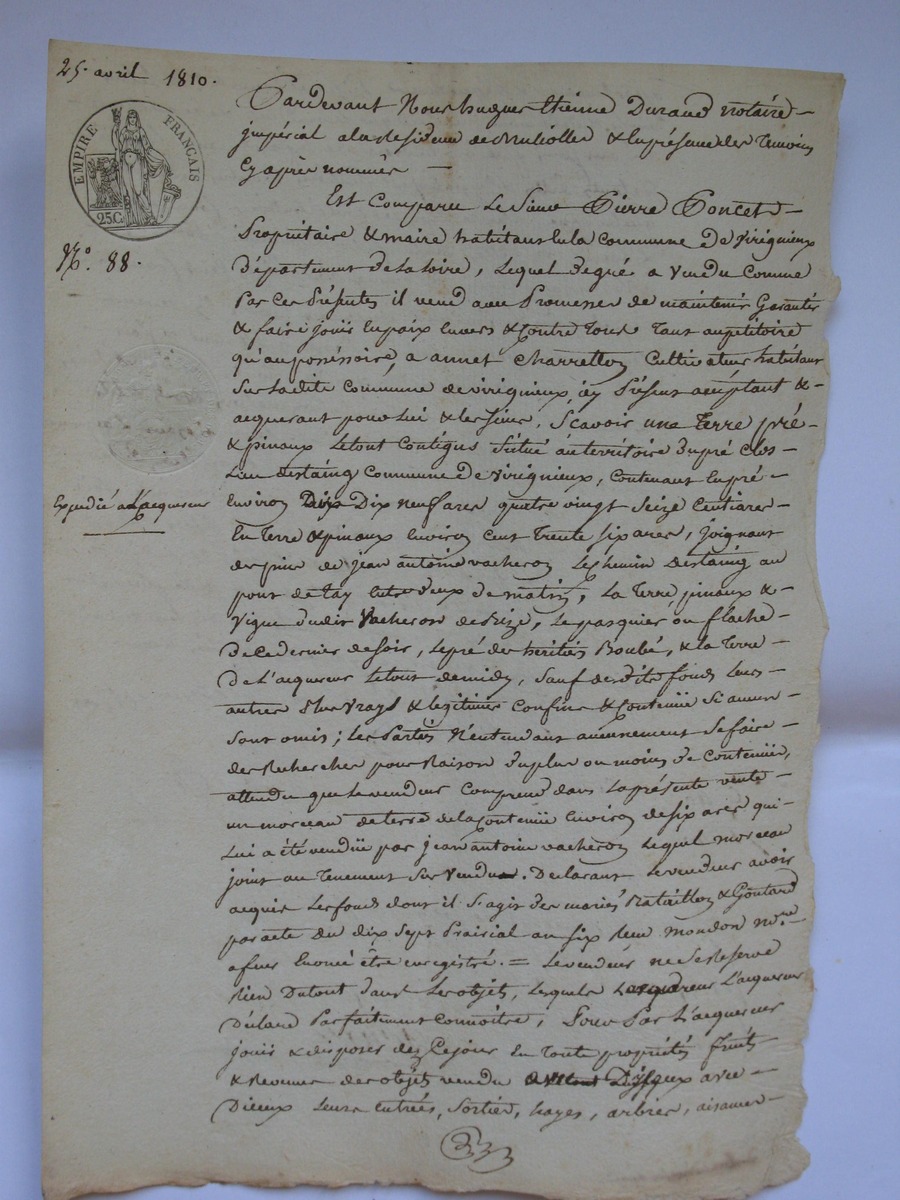 25. avril 1810.
EMPIRE FRANÇAIS
25 C
N.º 88.
Expédié a L'acquereur
Pardevant Nous hugues Etienne Durand notaire
impérial a la Residence de & En présence des Temoins
Cy après nommés
Est Comparu Le Sieur Pierre Poncet
Propriétaire & maire habitant En la Commune De viriginieux
Département De La Loire, Lequel De gré a Vendu Comme
Par Ces Présentes il vend avec Promesse de maintenir Garantir
& faire jouir En paix Envers & Contre Tous Tant au pétitoire
qu'au posséssoire, a annet Charretton Cultivateur habitant
Sur Ladite Commune de viriginieux, icy Présent acceptant &
acquerant pour Lui & les Siens, Scavoir une Terre pré
& pinaux Le tout Contigus Situé au territoire Du pré Clos
Lieu destaing Commune De viriginieux, Contenant En pré
Environ Dix neuf ares quatre vingt Seize Centiares
En Terre & pinaux Environ Cent Trente Six ares, joignant
de jean antoine vacheron Le chemin destaing au
pont de tay entre deux De matin, La Terre pinaux &
Vigne dudit Vacheron de Bize, Le pasquier ou flache
De Ce dernier de Soir, Le pré des héritiers Boubé, & La Terre
De L'acquereur Le tout de midy, Sauf desdits fonds Leurs
autres plus vrays & legitimes Confins & Contenüe Si aucuns
Sont omis; Les Parties N'entendant aucunement Se faire
des Recherches pour Raison Du plus ou moins De Contenüe,
attendu que Le vendeur Comprend dans La présente vente
un morceau de terre de La Contenüe Environ de Six ares qui
Lui a été vendüe par jean antoine vacheron Lequel morceau
joint au Tenement Sus vendu. Déclarant Le vendeur avoir
acquis Les fonds dont il S'agit des mariés Bataillon & Goutard
par acte du dix Sept Prairial an Six Reçu mondon n.re
a feurs Enoncé être enregistré. = Le vendeur ne Se Reserve
Rien Du tout dans Les objets, Lesquels L'acquereur
Déclare Parfaitement Connoitre, Pour Par L'acquereur
jouir & disposer dez Ce jour En Toute propriétés fruits
& Revenus des objets vendu avec
Dieux Leurs entrées, Sorties, hayes, arbres, aisances